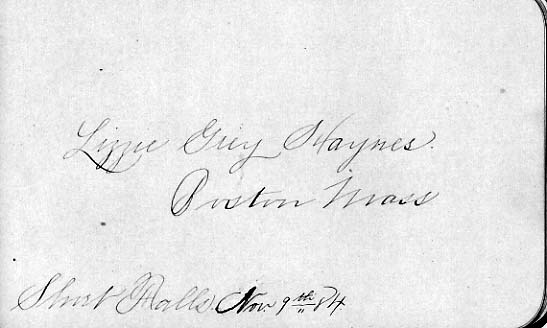 Lizzie Grey Haynes.
Boston Mass
Short Falls. Nov. 9th 84.